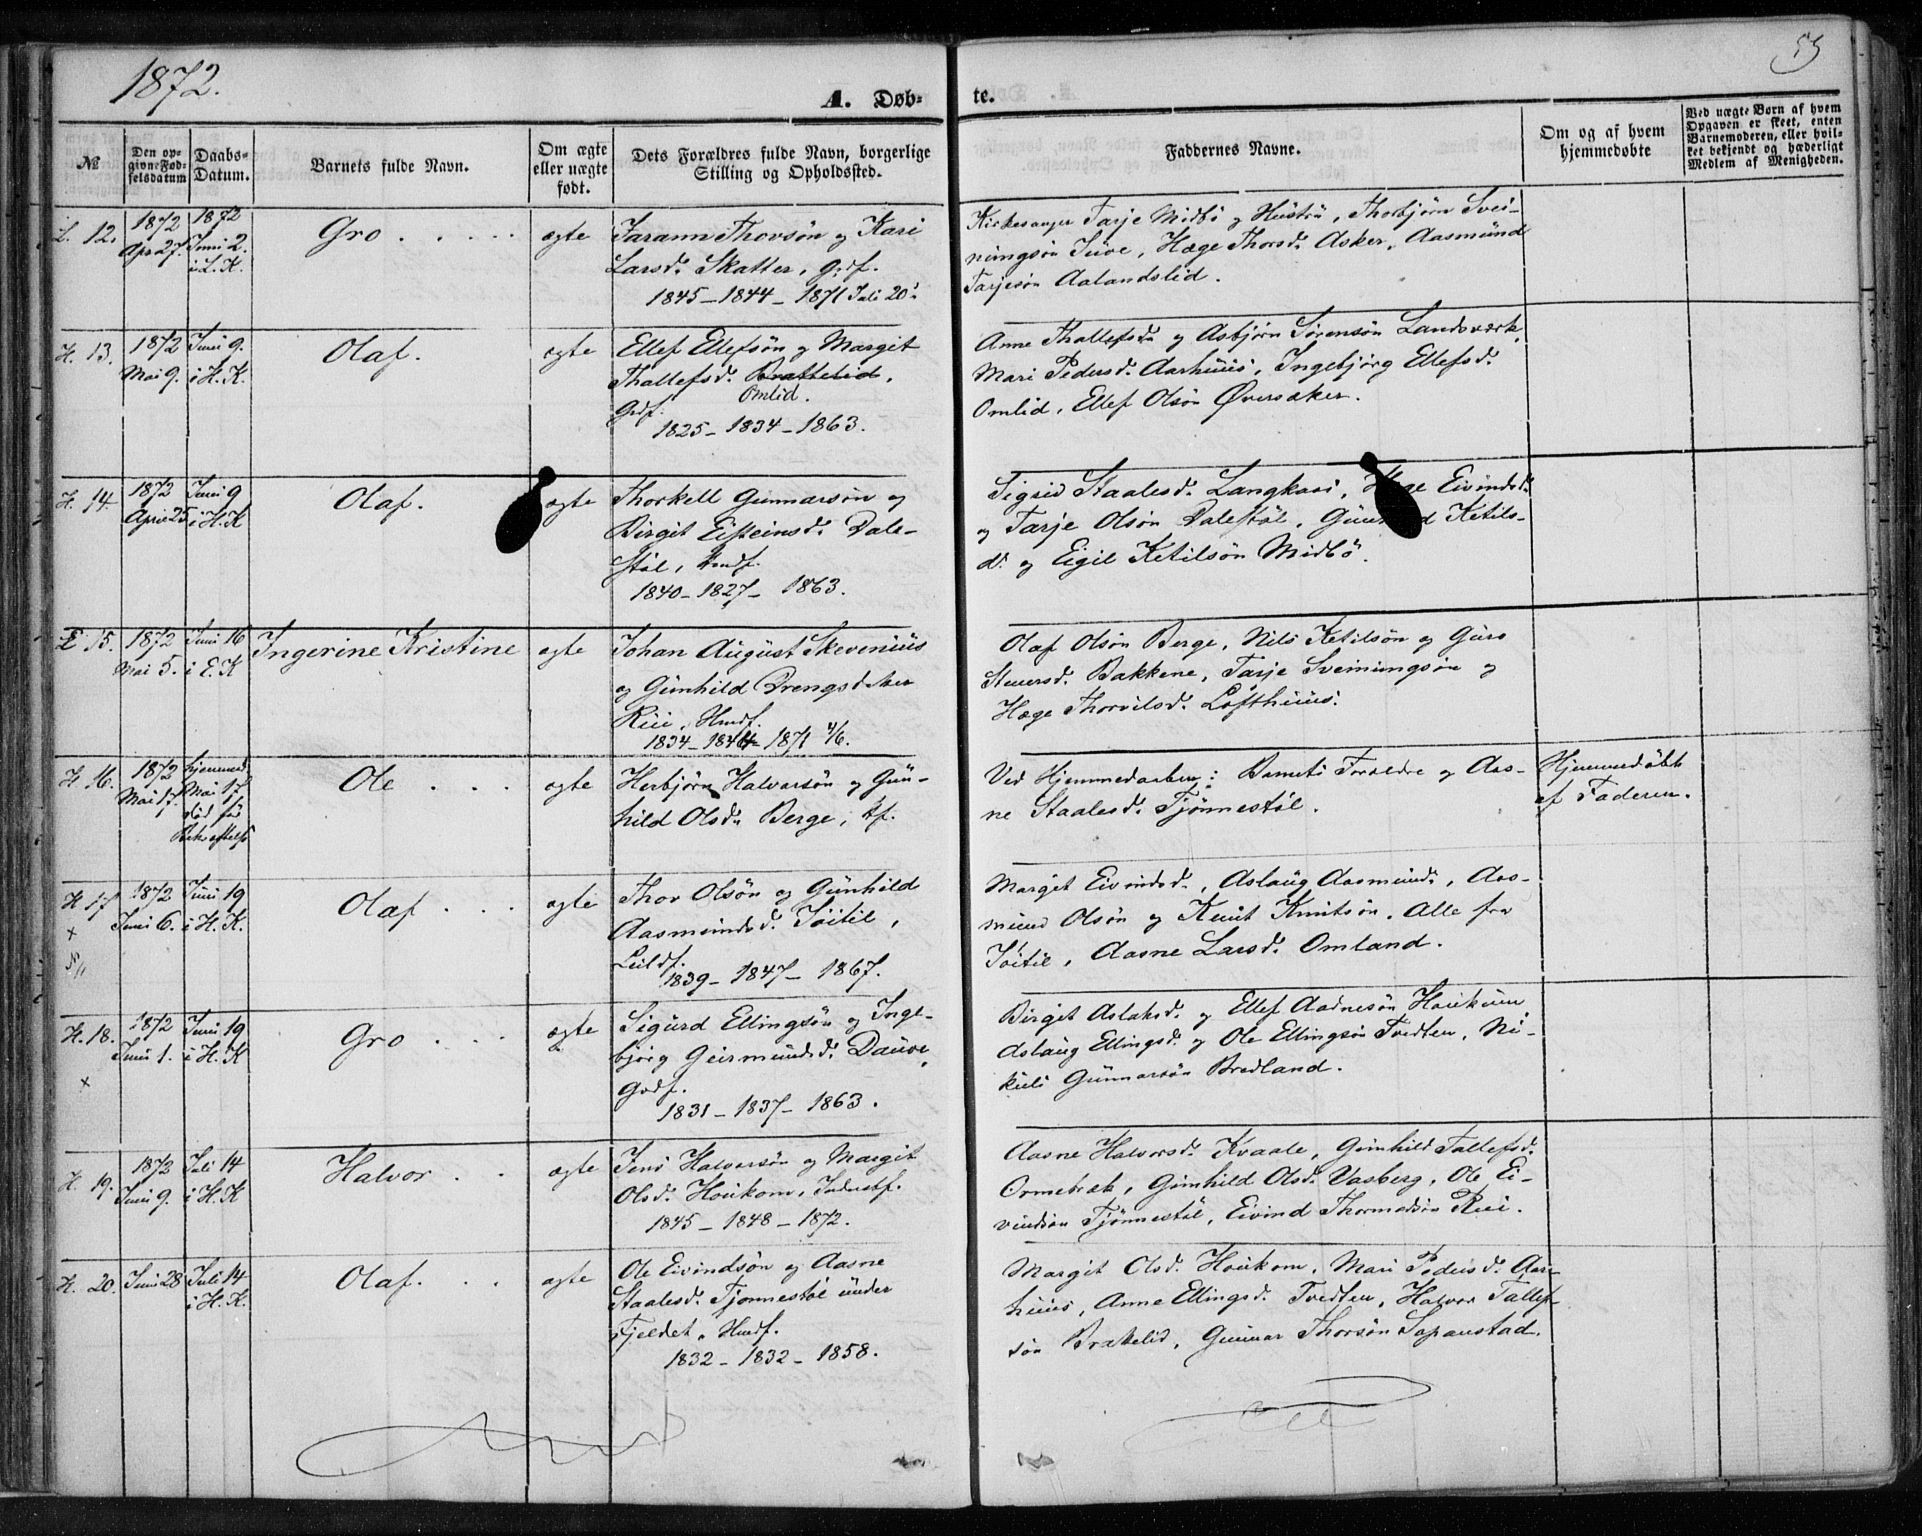 1872.
53
A. Døb-
te.
№
Den op-
givne Fød-
selsdatum
Daabs-
Datum.
Barnets fulde Navn.
Om ægte
eller uægte
født.
Dets Forældres fulde Navn, borgerlige
Stilling og Opholdssted.
Faddernes Navne.
Om og af hvem
hjemmedøbte
Ved uægte Børn af hvem
Opgaven er skeet, enten
Barnemoderen, eller hvil-
ket bekjendt og hæderligt
Medlem af Menigheden.
L. 12.
1872
Apr 27.
1872
Juni 2.
i L. K.
Gro
ægte
Jarann Thorsøn og Kari
Larsd. Skatter, Grdf.
1845 - 1844 - 1871 Juli 20
Kirkesanger Tarje Midbö og Hustru, Thorbjørn Svei-
nungsøn Juve, Hæge Thorsd. Asker, Aasmund
Tarjesøn Aalandslid.
H. 13.
1872
Mai 9.
Juni 9.
i H. K.
Olaf.
ægte
Ellef Ellefsøn og Margit
Thallefsd. Brattelid,
Omlid.
Grdf.
1825 - 1834 - 1863.
Anne Thallefsd. og Asbjørn Sørensøn Landsværk,
Mari Pedersd. Aarhuus, Ingebjørg Ellefsd.
Omlid, Ellef Olsøn Øversaker.
H. 14.
1872
April 25
Juni 9
i H. K
Olaf.
ægte
Thorkell Gunnarsøn og
Birgit Eisteinsd. Dale-
støl, Hmdf.
1840 - 1827 - 1863.
Sigrid Staalesd. Langkaas, Hæge Eivindsd.
og Tarje Olsøn Dalestøl, Gunhild Ketils-
d. og Eigil Ketilsøn Midbö.
E 15.
1872
Mai 5.
Juni 16
i E. K
Ingerine Kristine
ægte
Johan August Skevenius
og Gunhild Drengsd.
Rui, Hmdf.
1834 - 1844 - 1871 4/6.
Olaf Olsøn Berge, Nils Ketilsøn og Guro
Bakkene, Tarje Sveinungsøn og
Hæge Thorvilsd. Lofthuus.
H 16.
1872
Mai 17.
hjemmed.
Mai 17
død før
Bekræftelse
Ole
ægte
Herbjørn Halvorsøn og Gun-
hild Olsd. Berge, Kf.
Ved Hjemmedaaben: Barnets Forældre og Aas-
ne Staalesd. Tjønnestøl.
Hjemmedøbt
af Faderen.
H 17
1872
Juni 6.
Juni 19
i H. K.
Olaf
ægte
Thor Olsøn og Gunhild
Aasmundsd. Jøitil,
Leildf.
1839 - 1847 - 1867.
Margit Eivindsd., Aslaug Aasmunds, Aas-
mund Olsøn og Knut Knutsøn. Alle fra
Jøitil, Aasne Larsd. Omland.
H. 18.
1872
Juni 1.
Juni 19
i H. K
Gro
ægte
Sigurd Ellingsøn og Inge-
bjørg Geirmundsd. Dauve,
Grdf.
1831 - 1837 - 1863.
Birgit Aslaksd. og Ellef Aadnesøn Houkum
Aslaug Ellingsd. og Ole Ellingsøn Tvedten, Ni-
kuls Gunnarsøn Bredland.
H. 19.
1872
Juni 9.
Juli 14
i H. K
Halvor
ægte
Jens Halvorsøn og Margit
Olsd. Houkom, Inderstf.
1845 - 1848 - 1872.
Aasne Halvorsd. Kvaale, Gunhild Tallefsd.
Ormebrek, Gunhild Olsd. Vasberg, Ole Ei-
vindsøn Tjønnestøl, Eivind Thormodsøn Rui.
H. 20.
Juni 28
Juli 14
i H. K.
Olaf.
ægte
Ole Eivindsøn og Aasne
Staalesd. Tjønnestøl under
Fjeldet, Hmdf.
1832 - 1832 - 1858.
Margit Olsd. Houkom, Mari Pedersd. Aar-
huus, Anne Ellingsd. Tvedten, Halvor Tallef-
søn Brakelid, Gunnar Thorsøn